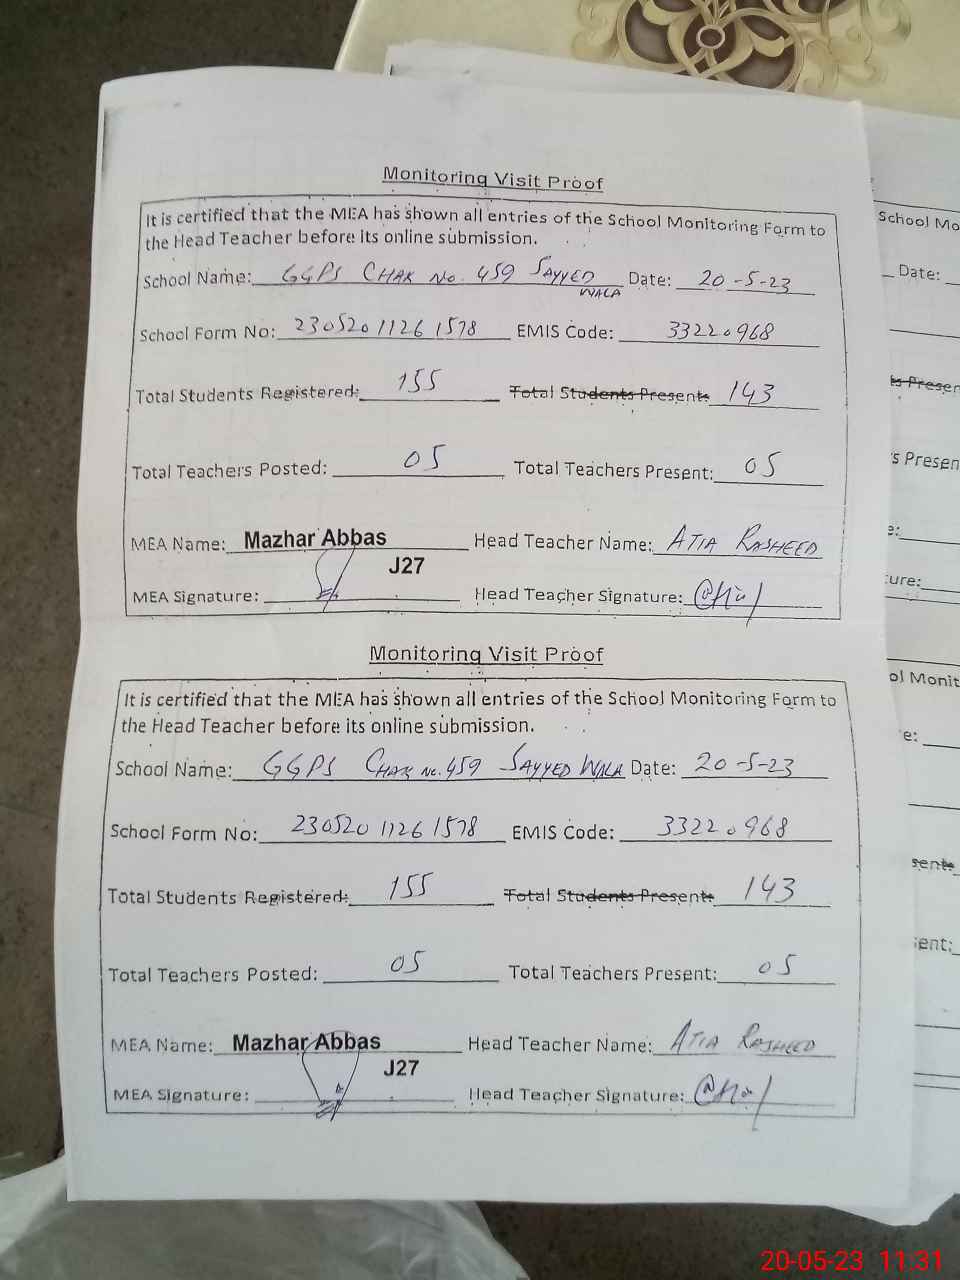 Monitoring Visit Proof
It is certified that the MEA has shown all entries of the School Monitoring Form to
the Head Teacher before its online submission.
School Name: GGPS CHAK NO. 459 SAYYED WALA Date: 20-5-23
School Form No: 230520 1126 1578 EMIS Code: 33220968
Total Students Registered: 155 Total Students Present: 143
Total Teachers Posted: 05 Total Teachers Present: 05
MEA Name: Mazhar Abbas Head Teacher Name: ATIA RASHEED
J27
MEA Signature: Head Teacher Signature:
Monitoring Visit Proof
It is certified that the MEA has shown all entries of the School Monitoring Form to
the Head Teacher before its online submission.
School Name: GGPS CHAK NO. 459 SAYYED WALA Date: 20-5-23
School Form No: 230520 1126 1578 EMIS Code: 33220968
Total Students Registered: 155 Total Students Present: 143
Total Teachers Posted: 05 Total Teachers Present: 05
MEA Name: Mazhar Abbas Head Teacher Name: ATIA RASHEED
J27
MEA Signature: Head Teacher Signature:
School Mo
Date:
ts Presen
's Presen
e:
ture:
ol Monit
e:
sent:
sent:
20-05-23 11:31